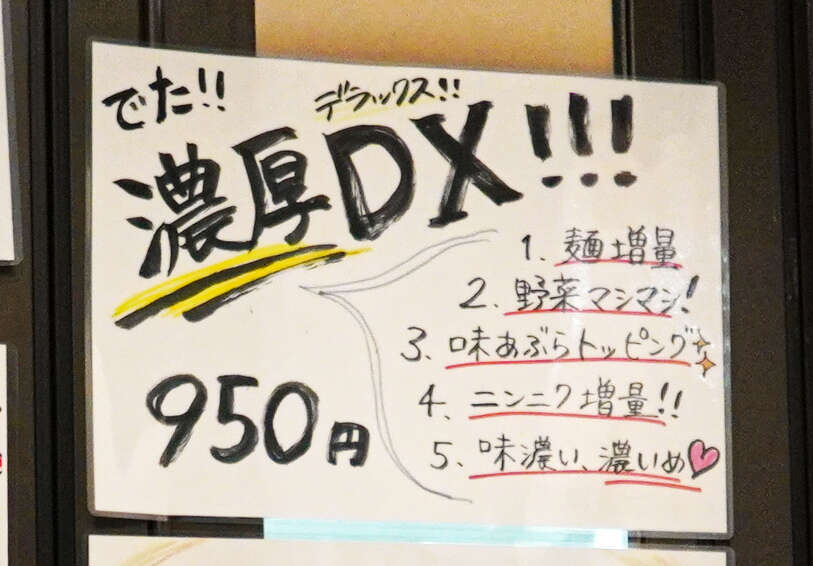 でた!!
デラックス!!
濃厚DX!!!
1、麺増量
2、野菜マシマシ!
3、味あぶらトッピング
4、ニンニク増量!!
5、味濃い、濃いめ
950円